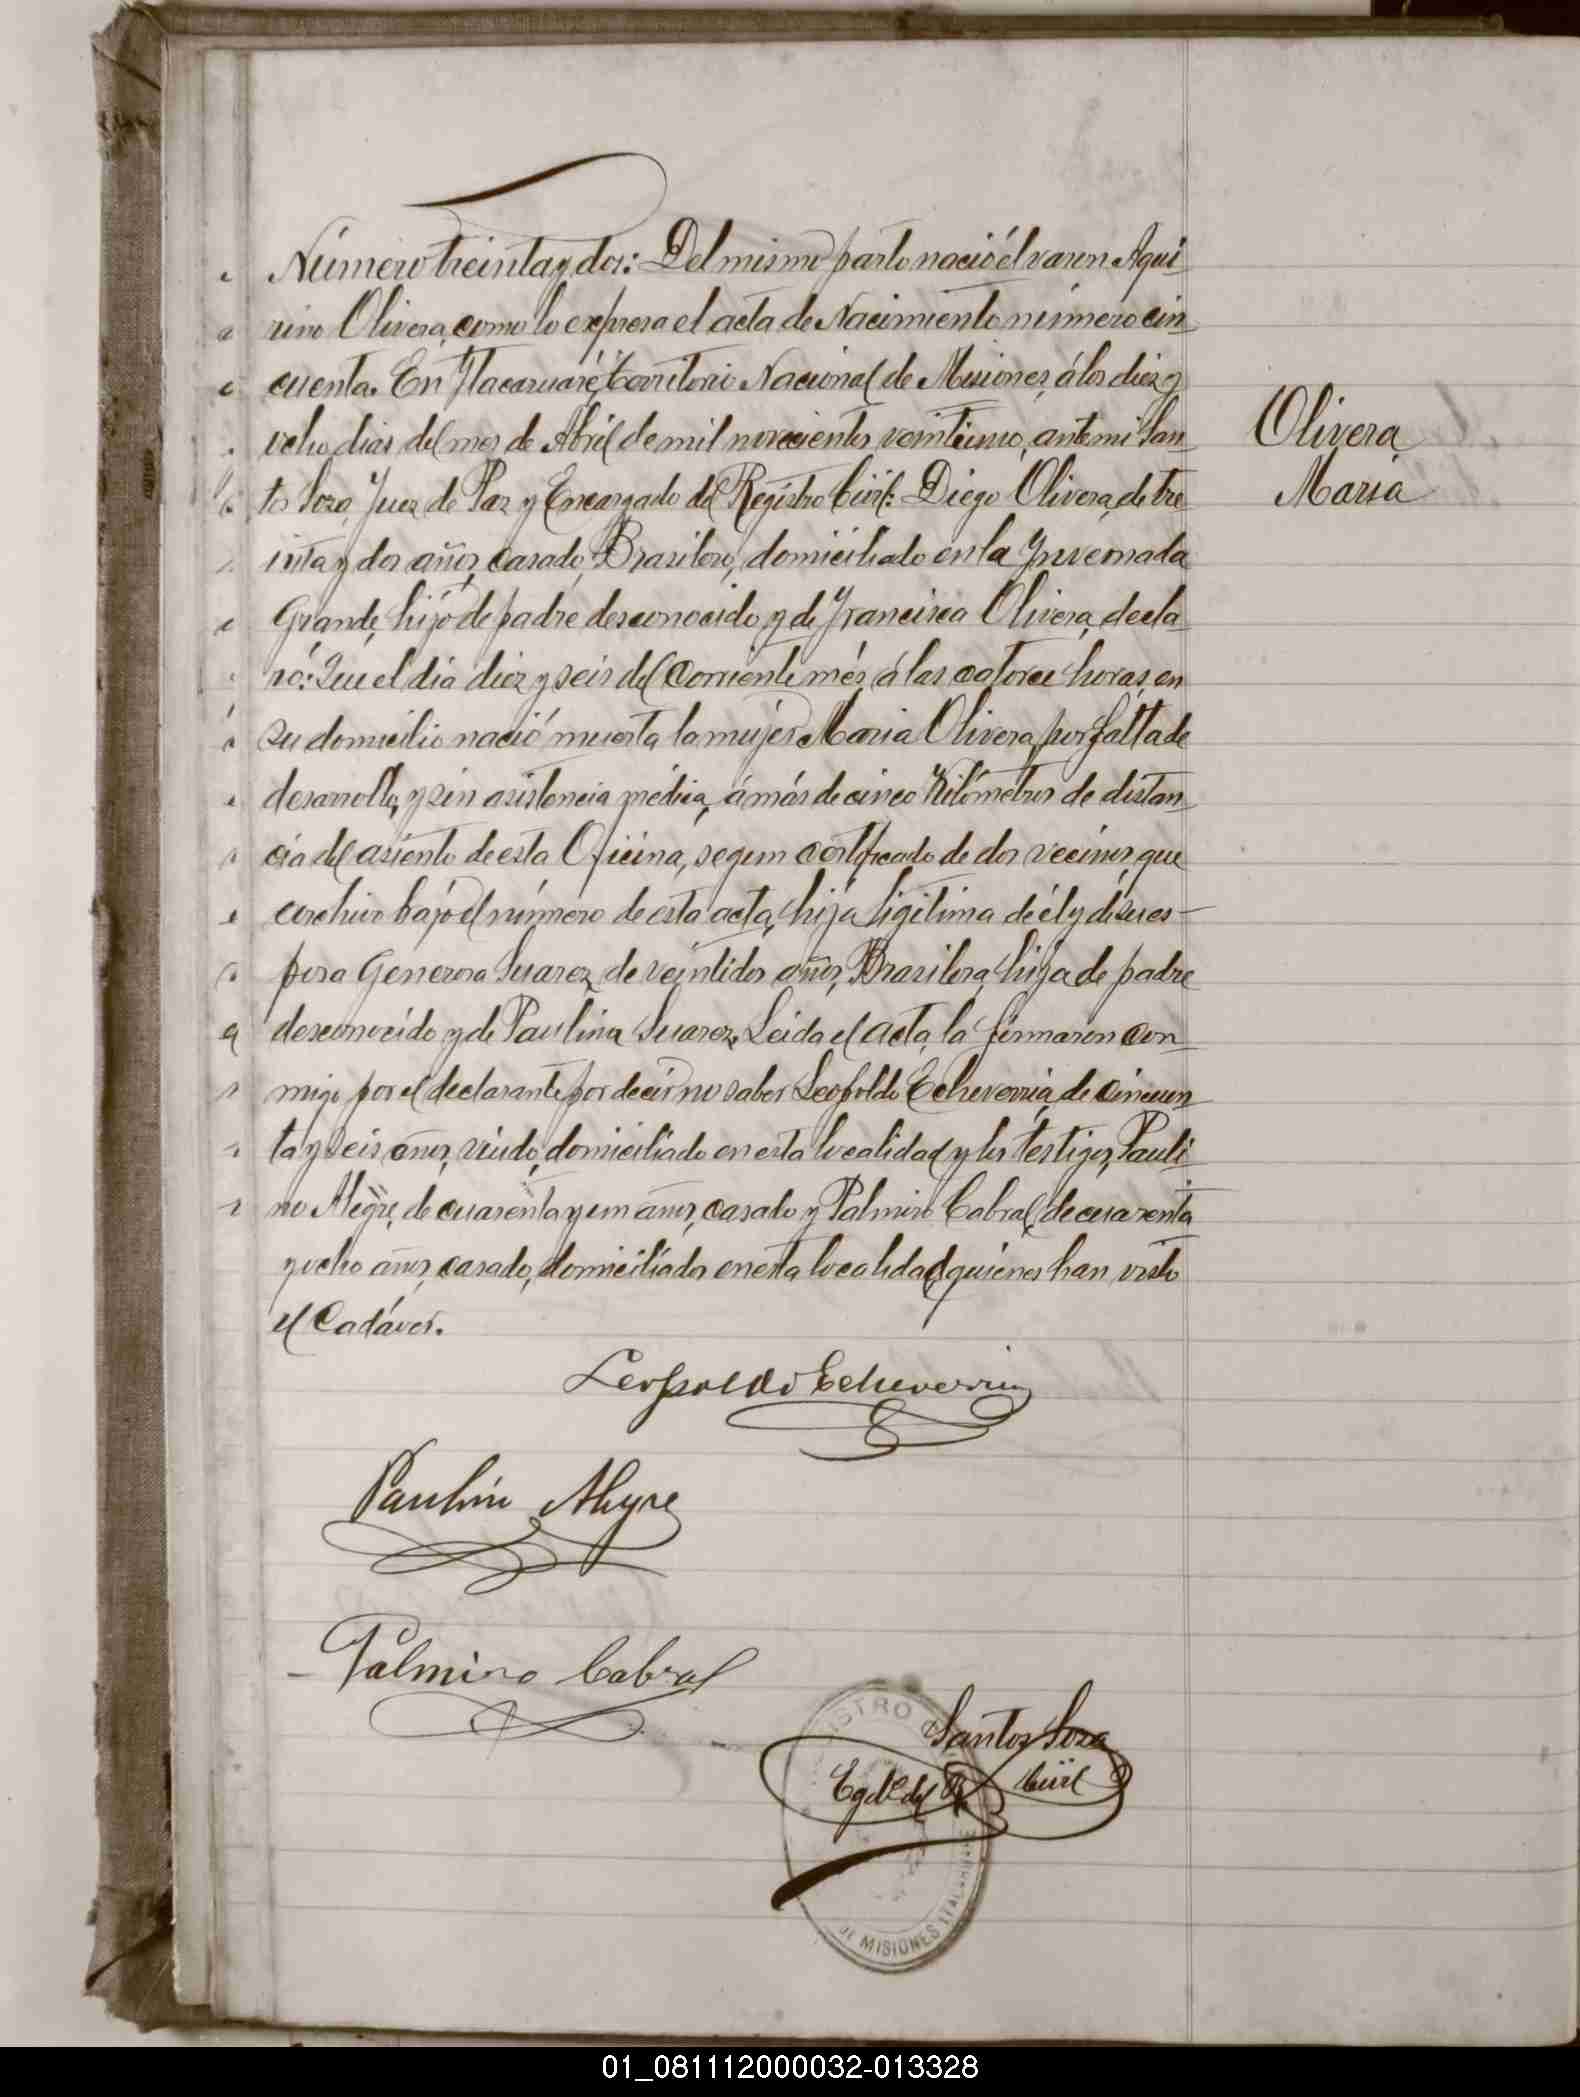 Número treinta y dos: Del mismo parto nació el varon Aqui-
rino Olivera, como lo expresa el acta de Nacimiento número cin-
cuenta. En Itacaruaré, Territorio Nacional de Misiones, á los diez y
ocho dias del mes de Abril de mil novecientos veintiuno, ante mi San-
tos Sosa, Juez de Paz y Encargado del Registro Civil: Diego Olivera, de tre
inta y dos años, casado, Brasilero, domiciliado en la Invernada
Grande, hijo de padre desconocido y de Francisca Olivera, decla-
ró: Que el dia diez y seis del corriente més, á las catorce horas, en
su domicilio nació muerta la mujer Maria Olivera, por falta de
desarrollo, y sin asistencia médica, á más de cinco Kilómetros de distan-
cia del asiento de esta Oficina, segun certificado de dos vecinos, que
archivo bajo el número de esta acta, hija ligitima de él y de su es-
posa Generosa Suarez, de veintidos años, Brasilera, hija de padre
desconocido y de Paulina Suarez. Leida el acta, la firmaron con-
migo por el declarante por decir no saber Leopoldo Echeverria, de cincuen-
ta y seis años, viudo, domiciliado en esta localidad y los testigos, Pauli-
no Alegre, de cuarenta y un años, casado y Palmiro Cabral, de cuarenta
y ocho años, casado, domiciliados en esta localidad, quienes han visto
el Cadáver.
Olivera
Maria
Leopoldo Echeverria
Paulino Alegre
Palmiro Cabral
Santos Sosa
Egdo del R. Civil
REGISTRO
DE MISIONES ITACARUARE
01_081112000032-013328